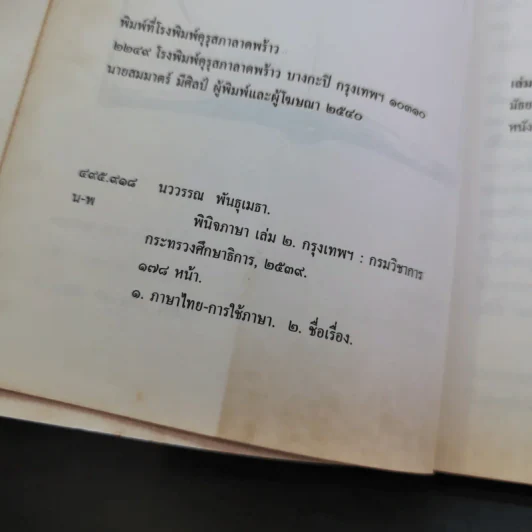 พิมพ์ที่โรงพิมพ์คุรุสภาลาดพร้าว
๒๒๔๙ โรงพิมพ์คุรุสภาลาดพร้าว บางกะปิ กรุงเทพฯ ๑๐๓๑๐
นายสมมาตร์ มีศิลป์ ผู้พิมพ์และผู้โฆษณา ๒๕๔๐
๔๙๕.๙๑๘ นววรรณ พันธุเมธา.
น-พ พินิจภาษา เล่ม ๒. กรุงเทพฯ : กรมวิชาการ
กระทรวงศึกษาธิการ, ๒๕๓๙.
๑๗๘ หน้า.
๑. ภาษาไทย-การใช้ภาษา. ๒. ชื่อเรื่อง.
เล่ม
นัยย
หนึ่ง